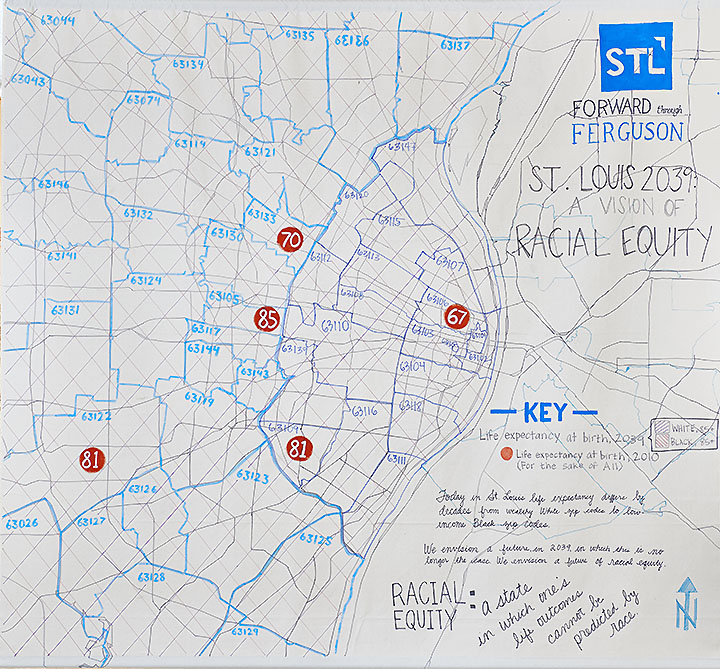 STL
FORWARD through
FERGUSON
ST. LOUIS 2039:
A VISION OF
RACIAL EQUITY
63044
63135
63136
63137
63134
63043
63074
63114
63121
63147
63146
63120
63132
63133
63115
63130
70
63141
63112
63113
63107
63124
63105
63108
63106
67
63131
85
63110
63103
63117
63101
63102
63144
63139
63143
63104
63119
63122
63116
63118
63109
81
81
63111
63123
63126
63026
63127
63125
63128
63129
KEY
Life expectancy at birth, 2039
WHITE, 85+
BLACK, 85+
Life expectancy at birth, 2010
(For the sake of All)
Today in St. Louis life expectancy differs by
decades from wealthy White zip codes to low-
income Black zip codes.
We envision a future in 2039 in which this is no
longer the case. We envision a future of racial equity.
RACIAL
EQUITY :
a state
in which one's
life outcomes
cannot be
predicted by
race.
N